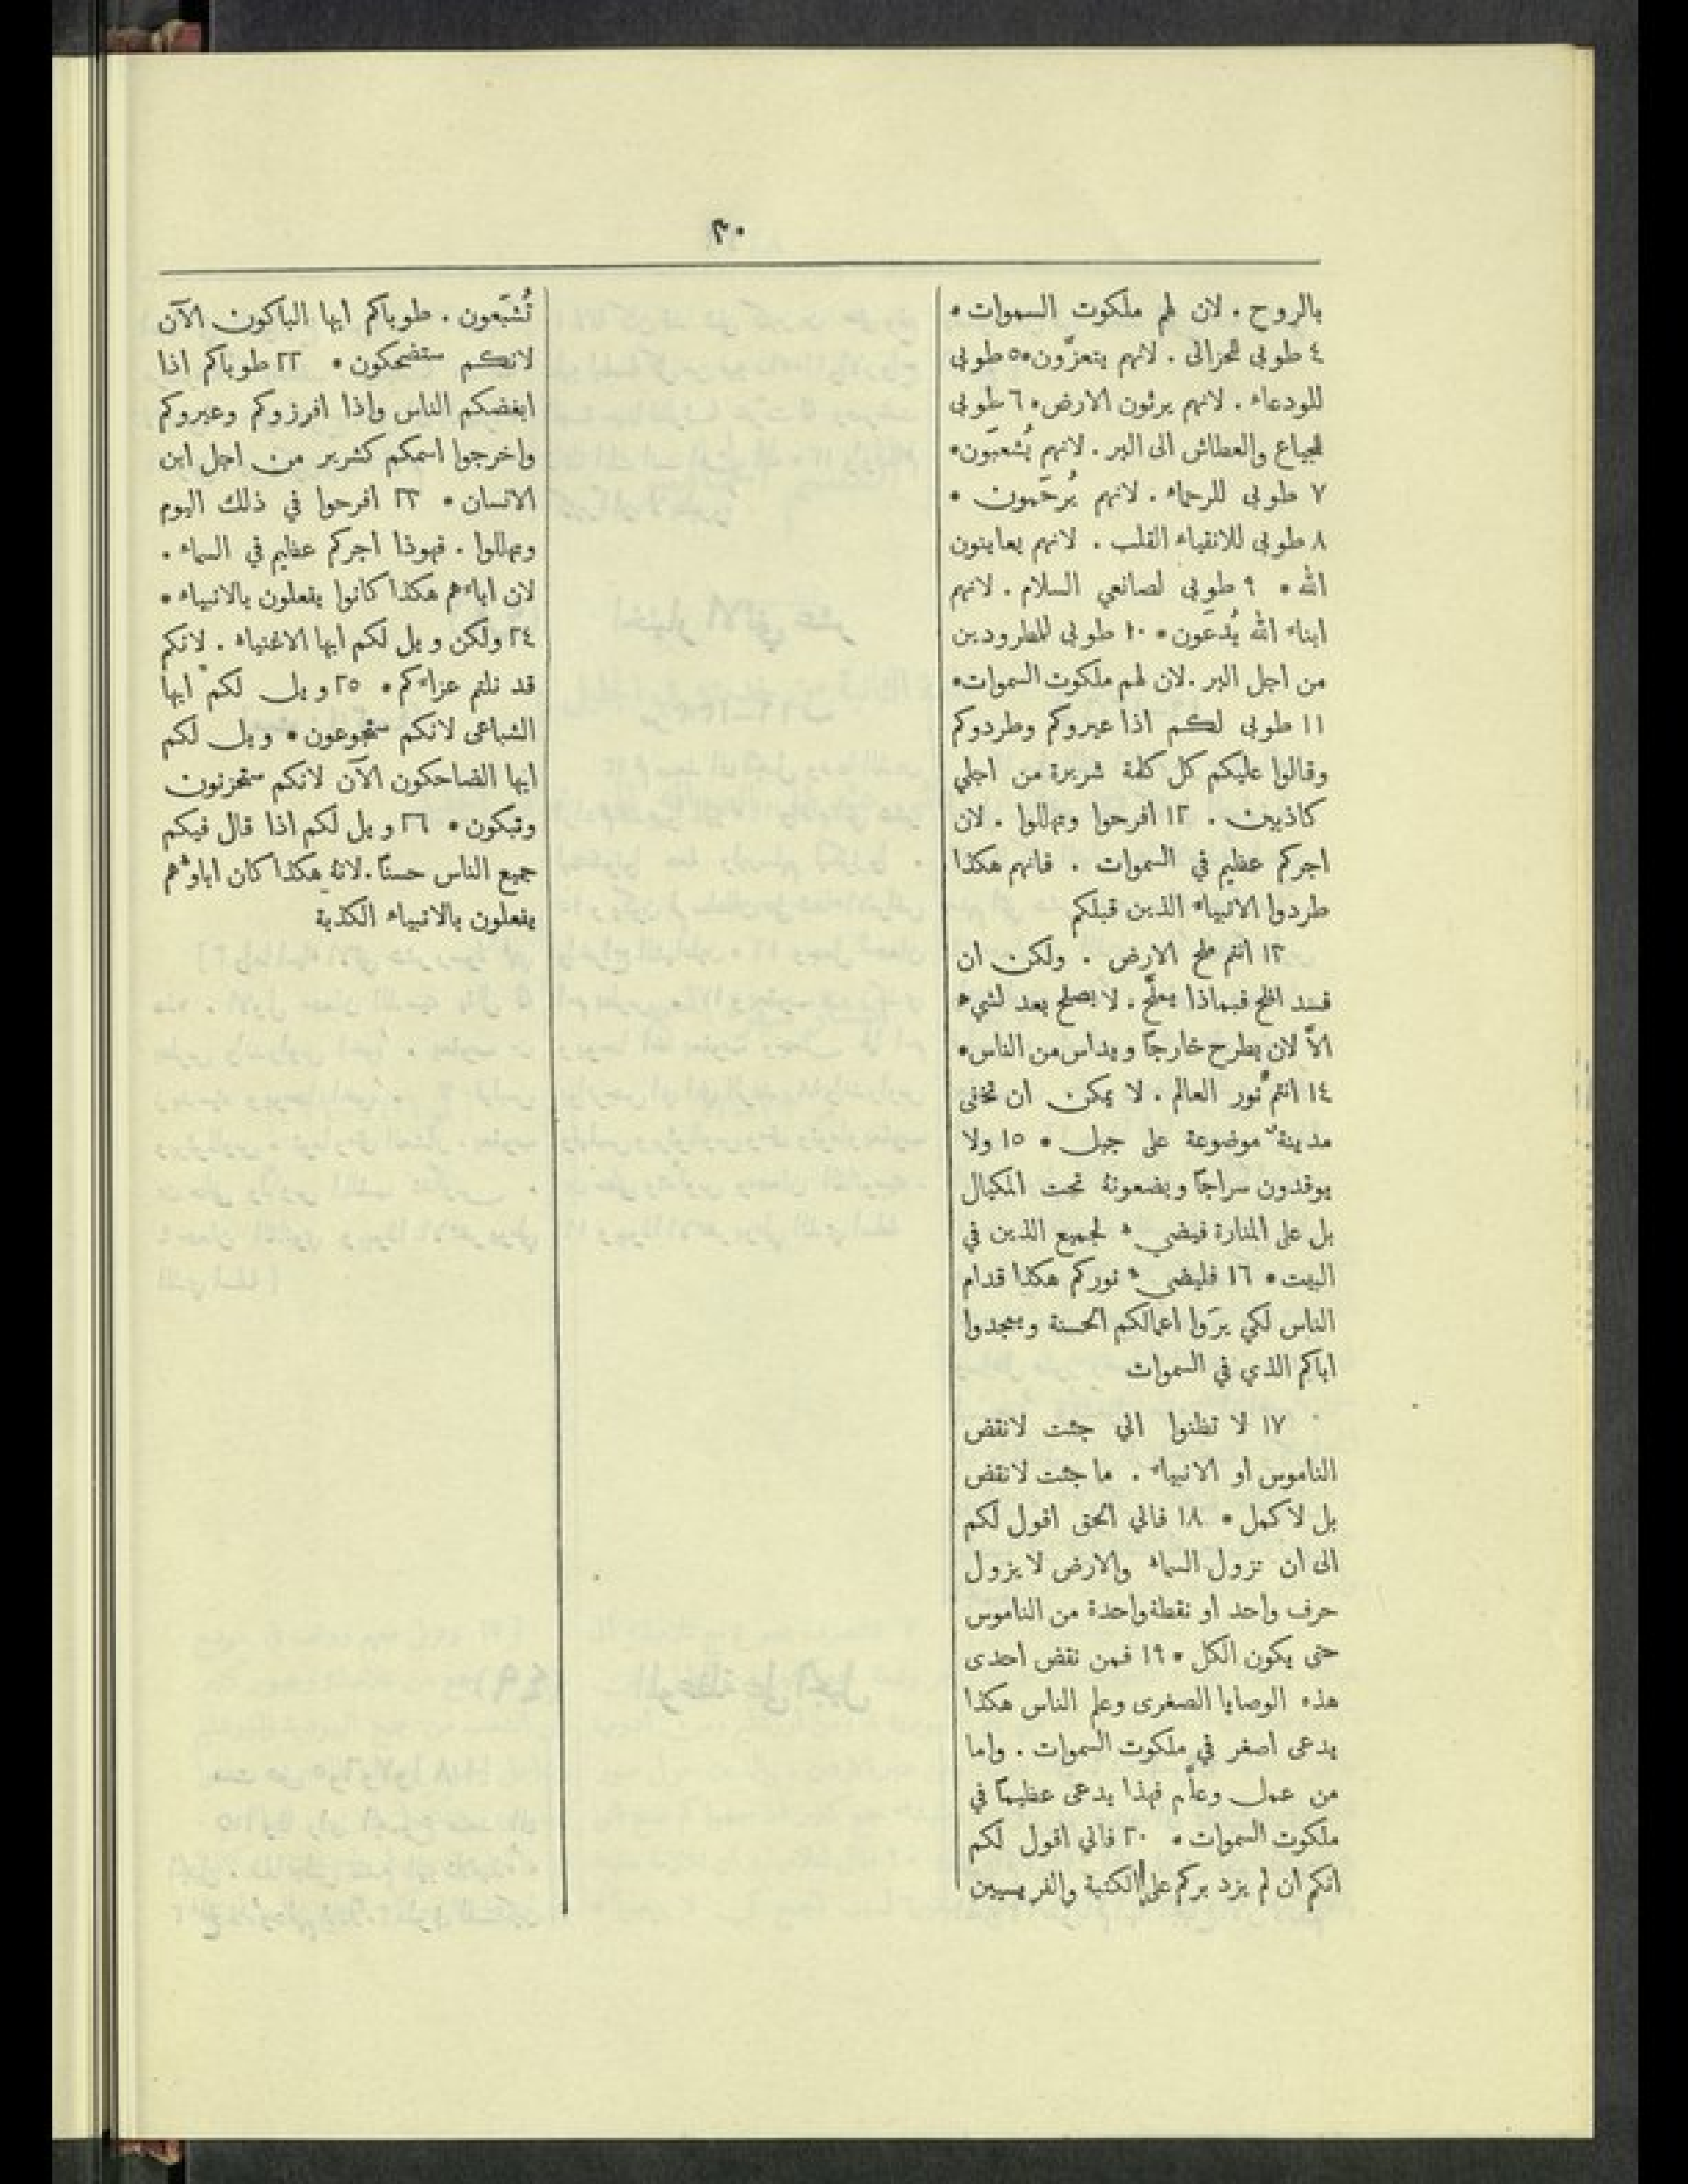 ٣٠
بالروح . لان لهم ملكوت السموات *
٤ طوبى للحزانى . لانهم يتعزّون * ٥ طوبى
للودعاء . لانهم يرثون الارض * ٦ طوبى
للجياع والعطاش الى البر . لانهم يُشعبَون *
٧ طوبى للرحماء . لانهم يُرحَمون *
٨ طوبى للانقياء القلب . لانهم يعاينون
الله * ٩ طوبى لصانعي السلام . لانهم
ابناء الله يُدعَون * ١٠ طوبى للمطرودين
من اجل البر . لان لهم ملكوت السموات *
١١ طوبى لكم اذا عيروكم وطردوكم
وقالوا عليكم كل كلمة شريرة من اجلي
كاذبين . ١٢ افرحوا وتهللوا . لان
اجركم عظيم في السموات . فانهم هكذا
طردوا الانبياء الذين قبلكم
١٣ انتم ملح الارض . ولكن ان
فسد الملح فبماذا يملَّح . لا يصلح بعد لشيء
الّا لان يطرح خارجًا ويداس من الناس *
١٤ انتم نور العالم . لا يمكن ان تخفى
مدينة موضوعة على جبل * ١٥ ولا
يوقدون سراجًا ويضعونهُ تحت المكيال
بل على المنارة فيضيء لجميع الذين في
البيت * ١٦ فليضيء نوركم هكذا قدام
الناس لكي يرَوا اعمالكم الحسنة ويمجدوا
اباكم الذي في السموات
١٧ لا تظنوا اني جئت لانقض
الناموس او الانبياء . ما جئت لانقض
بل لاكمل * ١٨ فاني الحق اقول لكم
الى ان تزول السماء والارض لا يزول
حرف واحد او نقطة واحدة من الناموس
حتى يكون الكل * ١٩ فمن نقض احدى
هذه الوصايا الصغرى وعلم الناس هكذا
يدعى اصغر في ملكوت السموات . واما
من عمل وعلَّم فهذا يدعى عظيمًا في
ملكوت السموات * ٢٠ فاني اقول لكم
انكم ان لم يزد بركم على الكتبة والفريسيين
تُشبَعون . طوباكم ايها الباكون الآن
لانكم ستضحكون * ٢٢ طوباكم اذا
ابغضكم الناس واذا افرزوكم وعيروكم
واخرجوا اسمكم كشرير من اجل ابن
الانسان * ٢٣ افرحوا في ذلك اليوم
وتهللوا . فهوذا اجركم عظيم في السماء .
لان اباءهم هكذا كانوا يفعلون بالانبياء *
٢٤ ولكن ويل لكم ايها الاغنياء . لانكم
قد نلتم عزاءكم * ٢٥ ويل لكم ايها
الشباعى لانكم ستجوعون * ويل لكم
ايها الضاحكون الآن لانكم ستحزنون
وتبكون * ٢٦ ويل لكم اذا قال فيكم
جميع الناس حسنًا . لانهُ هكذا كان اباوءهم
يفعلون بالانبياء الكذبة